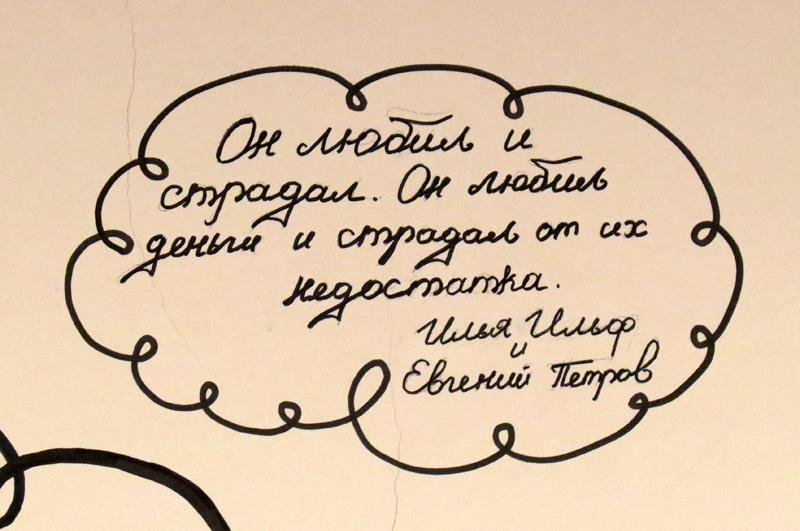 Он любил и
страдал. Он любил
деньги и страдал от их
недостатка.
Илья Ильф
и
Евгений Петров